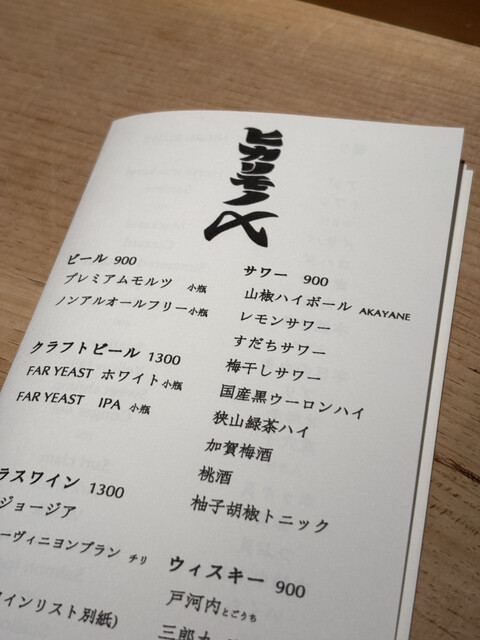 ヒカリモノ〆
ビール 900
プレミアムモルツ 小瓶
ノンアルオールフリー小瓶
クラフトビール 1300
FAR YEAST ホワイト小瓶
FAR YEAST IPA 小瓶
ラスワイン 1300
ジョージア
ーヴィニヨンブラン チリ
インリスト別紙)
サワー 900
山椒ハイボール AKAYANE
レモンサワー
すだちサワー
梅干しサワー
国産黒ウーロンハイ
狭山緑茶ハイ
加賀梅酒
桃酒
柚子胡椒トニック
ウィスキー 900
戸河内とごうち
三郎丸